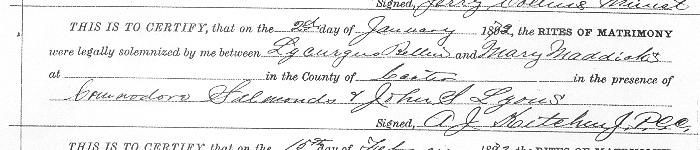 Signed, Jerry Collins, Minist
THIS IS TO CERTIFY, that on the 2d day of January 1892, the RITES OF MATRIMONY
were legally solemnized by me between Lycurgus and Mary Maddicks
at in the County of Carter in the presence of
Commodore Salmonds & John S Lyons
Signed, A. J. Kitchen J.P.C.C.
THIS IS TO CERTIFY, that on the 15th day of 1892 the RITES OF MATRIMONY